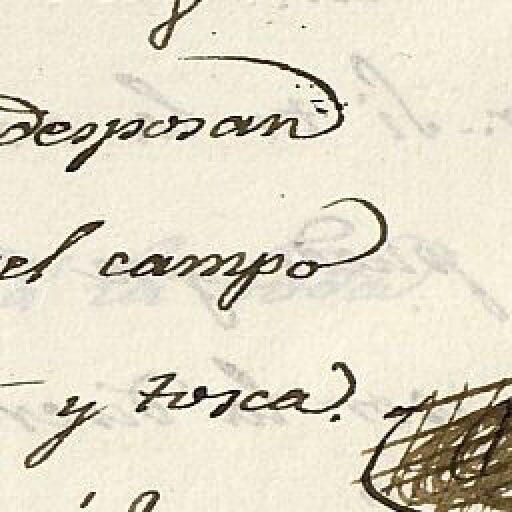 desposan
el campo
y tosca.